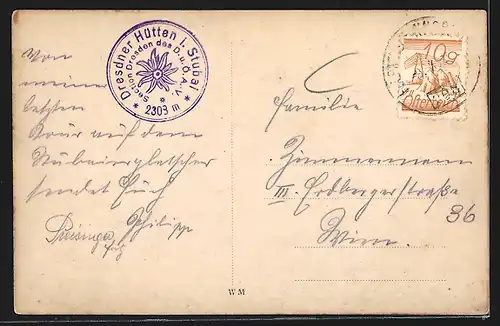 Dresdner Hütten i. Stubai
Section Dresden des D.u.Ö.A.V.
* 2303 m *
10g
Von
meiner
letzten
Tour auf dem
Stubaiergletscher
sendet Euch
Philipp
Familie
Zimmermann
III. Erdbergerstraße
36
Wien.
W M